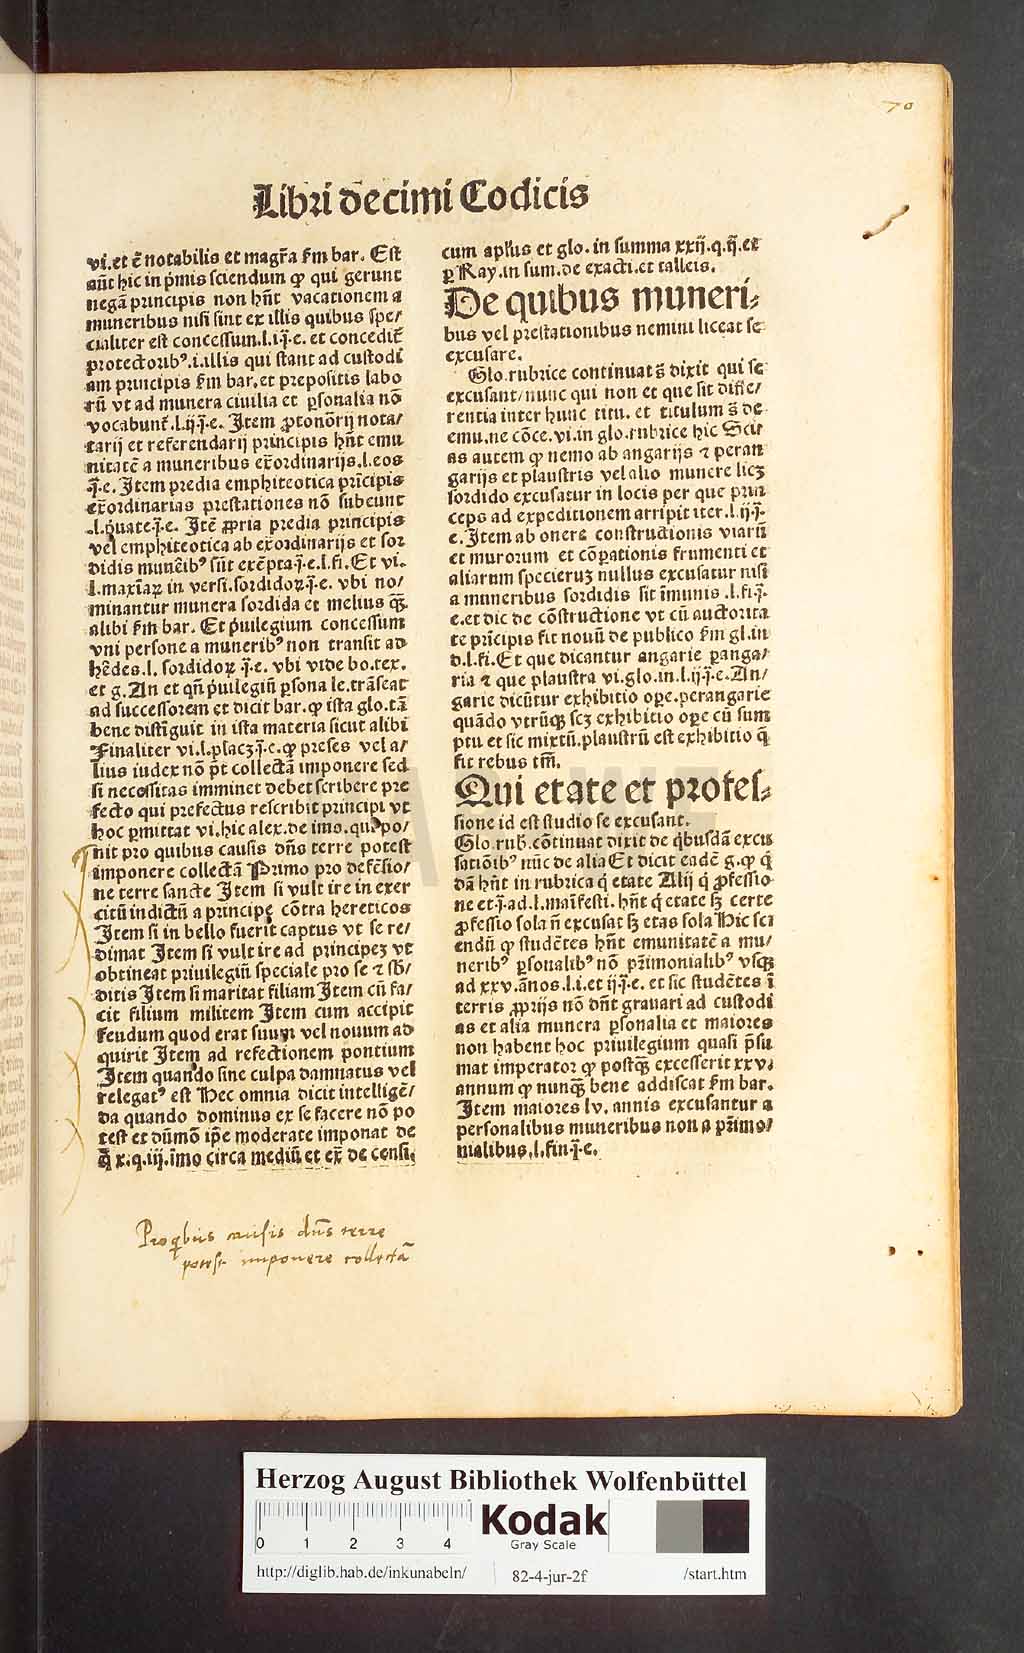 70
Libri decimi Codicis
vi. et c̄ notabilis et magr̄a ẜm bar. Est
aūt hic in p̄mis sciendum ꝙ qui gerunt
negā principis non hn̄t vacationem a
muneribus nisi sint ex illis quibus spe/
cialiter est concessum.l.i.j̄.e. et concedit̄
protectoribꝰ.i.illis qui stant ad custodi
am principis ẜm bar. et prepositis labo
rū vt ad munera ciuilia et ꝑsonalia nō
vocabunt̄.l.ij.j̄.e. Item ꝓtonōrij nota/
tarij et referendarij principis hn̄t emu
nitatē a muneribus ex̄ordinarijs.l.eos
j̄.e. Item predia emphiteotica prīcipis
ex̄ordinarias prestationes nō subeunt
.l.p̄uate.j̄.e. Itē ꝓpria predia principis
vel emphiteotica ab ex̄ordinarijs et sor
didis munēibꝰ sūt exēpta.j̄.e.l.fi. Et vi.
l.maxīaꝝ in versi.sordidoꝝ.j̄.e. vbi no/
minantur munera sordida et melius qꝫ̄
alibi ẜm bar. Et p̄uilegium concessum
vni persone a muneribꝰ non transit ad
hēdes.l. sordidoꝝ j̄.e. vbi vide bo.tex.
et g. An et qn̄ p̄uilegiū ꝑsona le.trāseat
ad successorem et dicit bar. ꝙ ista glo.tā
bene distīguit in ista materia sicut alibi
Finaliter vi.l.placꝫ.j̄.e. ꝙ preses vel a/
lius iudex nō p̄t collectā imponere sed
si necessitas imminet debet scribere pre
fecto qui prefectus rescribit principi vt
hoc ꝑmittat vi.hic alex.de imo. qui po/
nit pro quibus causis dn̄s terre potest
imponere collectā Primo pro defēsio/
ne terre sancte Item si vult ire in exer
citū indictū a principe cōtra hereticos
Item si in bello fuerit captus vt se re/
dimat Item si vult ire ad principeꝫ vt
obtineat priuilegiū speciale pro se ⁊ sb̄/
ditis Item si maritat filiam Item cū fa/
cit filium militem Item cum accipit
feudum quod erat suum vel nouum ad
quirit Item ad refectionem pontium
Item quando sine culpa damnatus vel
relegatꝰ est Hec omnia dicit intelligē/
da quando dominus ex se facere nō po
test et dūmō ip̄e moderate imponat de
q̄ x.q.iij.īmo circa mediū et ex̄ de censi.
cum apl̄us et glo. in summa xxij.q.ij̄.et
ꝑ Ray.in sum.de exacti.et talleis.
De quibus muneri-
bus vel prestationibus nemini liceat se
excusare.
Glo.rubrice continuat s̄ dixit qui se
excusant/nunc qui non et que sit diffe/
rentia inter hunc titu. et titulum s̄ de
emu.ne cōce.vi.in glo.rubrice hic Scir
as autem ꝙ nemo ab angarijs ⁊ peran
garijs et plaustris vel alio munere licꝫ
sordido excusatur in locis per que prin
ceps ad expeditionem arripit iter.l.ij.j̄.
e. Item ab onere constructionis viarū
et murorum et cōꝑationis frumenti et
aliarum specieruꝫ nullus excusatur nisi
a muneribus sordidis sit īmunis .l.fi.j̄.
e. et dic de cōstructione vt cū auctorita
te prīcipis fit nouū de publico ẜm gl.in
d.l.fi. Et que dicantur angarie ꝑanga/
ria ⁊ que plaustra vi.glo.in.l.ij.j̄.e. An/
garie dicūtur exhibitio oꝑe.perangarie
quādo vtrūqꝫ scꝫ exhibitio oꝑe cū sum
ptu et sic mixtū.plaustrū est exhibitio q̄
fit rebus tm̄.
Qui etate et profes-
sione id est studio se excusant.
Glo.rub̄. cōtinuat dixit de q̄busdā excu
satiōibꝰ nūc de alia Et dicit eadē g. ꝙ q̄
dā hn̄t in rubrica q̄ etate Alij q̄ ꝓfessio
ne et.j̄.ad.l.manīfesti. hn̄t q̄ etate sꝫ certe
ꝓfessio sola n̄ excusat sꝫ etas sola Hic sci
endū ꝙ studētes hn̄t emunitatē a mu/
neribꝰ ꝑsonalibꝰ nō pr̄imonialibꝰ vsqꝫ
ad xxv.ānos.l.i.et ij.j̄.e. et sic studētes ī
terris ꝓprijs nō dn̄t grauari ad custodi
as et alia munera ꝑsonalia et maiores
non habent hoc priuilegium quasi p̄su
mat imperator ꝙ postqꝫ̄ excesserit xxv.
annum ꝙ nunqꝫ̄ bene addiscat ẜm bar.
Item maiores lv. annis excusantur a
personalibus muneribus non a pr̄imo/
nialibus.l.fin.j̄.e.
Pro qbus causis dn̄s terre
potest imponere collectā
Herzog August Bibliothek Wolfenbüttel
0 1 2 3 4
Kodak
Gray Scale
http://diglib.hab.de/inkunabeln/ 82-4-jur-2f /start.htm